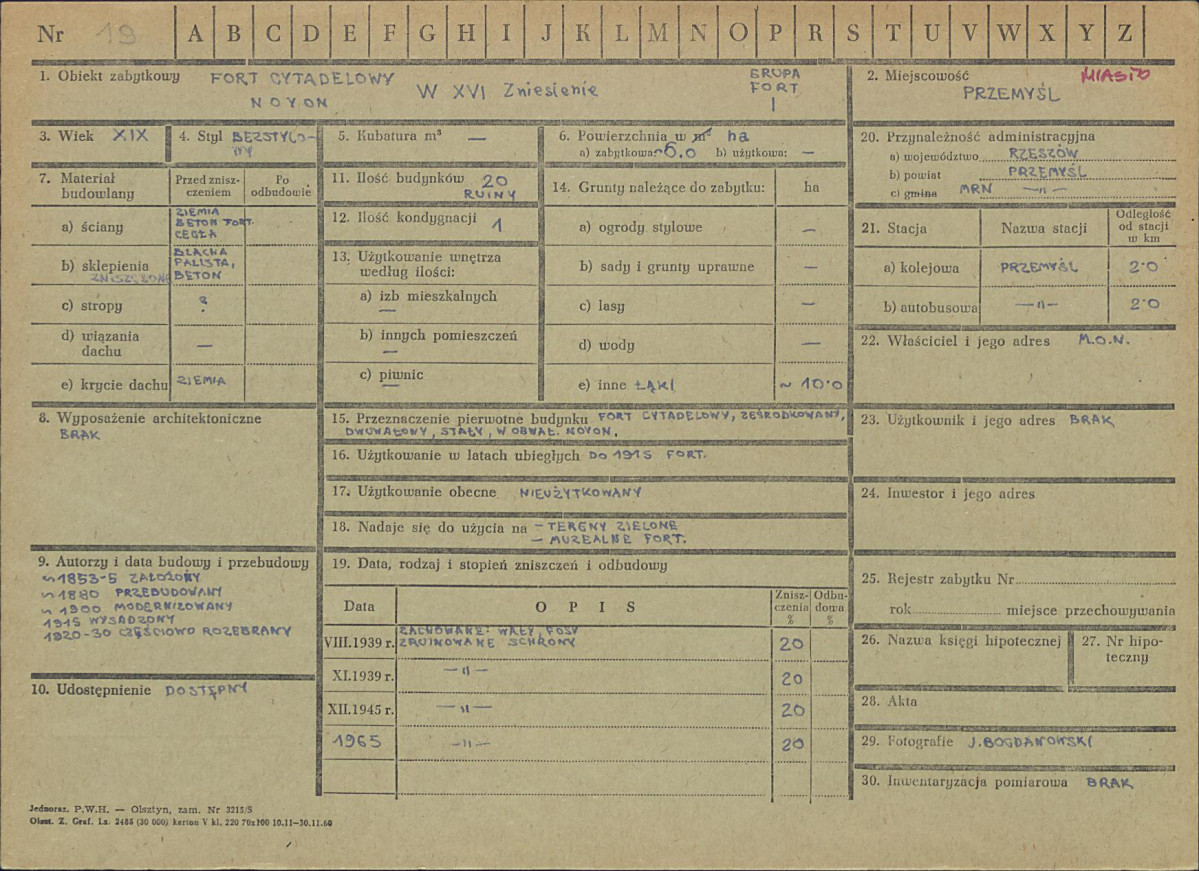 Nr 19 A B C D E F G H I J K L M N O P R S T U V W X Y Z
1. Obiekt zabytkowy FORT CYTADELOWY
NOYON
W XVI Zniesienie
GRUPA
FORT
I
2. Miejscowość MIASTO
PRZEMYŚL
3. Wiek XIX
4. Styl BEZSTYLO-
WY
5. Kubatura m³ —
6. Powierzchnia w m² ha
a) zabytkowa: ~6.0 b) użytkowa: —
7. Materiał budowlany
Przed znisz-czeniem
Po odbudowie
a) ściany ZIEMIA
BETON FORT.
CEGŁA
b) sklepienia BLACHA
ZNISZCZONE PALISTA,
BETON
c) stropy ?
d) wiązania dachu —
e) krycie dachu ZIEMIA
8. Wyposażenie architektoniczne
BRAK
9. Autorzy i data budowy i przebudowy
~1853-5 ZAŁOŻONY
~1880 PRZEBUDOWANY
~1900 MODERNIZOWANY
1915 WYSADZONY
1920-30 CZĘŚCIOWO ROZEBRANY
10. Udostępnienie DOSTĘPNY
11. Ilość budynków 20
RUINY
12. Ilość kondygnacji 1
13. Użytkowanie wnętrza
według ilości:
a) izb mieszkalnych
—
b) innych pomieszczeń
—
c) piwnic
—
14. Grunty należące do zabytku: ha
a) ogrody stylowe —
b) sady i grunty uprawne —
c) lasy —
d) wody —
e) inne ŁĄKI ~ 10·0
15. Przeznaczenie pierwotne budynku FORT CYTADELOWY, ZEŚRODKOWANY,
DWUWAŁOWY, STAŁY, W OBWAŁ. NOYON.
16. Użytkowanie w latach ubiegłych DO 1915 FORT.
17. Użytkowanie obecne NIEUŻYTKOWANY
18. Nadaje się do użycia na – TERENY ZIELONE
– MUZEALNE FORT.
19. Data, rodzaj i stopień zniszczeń i odbudowy
Data
O P I S
Znisz-czenia %
Odbu-dowa %
VIII.1939 r. ZACHOWANE: WAŁY, FOSY
ZRUJNOWANE SCHRONY 20
XI.1939 r. —"— 20
XII.1945 r. —"— 20
1965 —"— 20
20. Przynależność administracyjna
a) województwo RZESZÓW
b) powiat PRZEMYŚL
c) gmina MRN —"—
21. Stacja
Nazwa stacji
Odległość od stacji w km
a) kolejowa PRZEMYŚL 2·0
b) autobusowa —"— 2·0
22. Właściciel i jego adres M.O.N.
23. Użytkownik i jego adres BRAK
24. Inwestor i jego adres
25. Rejestr zabytku Nr
rok miejsce przechowywania
26. Nazwa księgi hipotecznej
27. Nr hipo-
teczny
28. Akta
29. Fotografie J. BOGDANOWSKI
30. Inwentaryzacja pomiarowa BRAK
Jednoraz. P.W.H. — Olsztyn, zam. Nr 3215/S
Olszt. Z. Graf. Lz. 2485 (30 000) karton V kl. 220 70x100 10.11—30.11.60